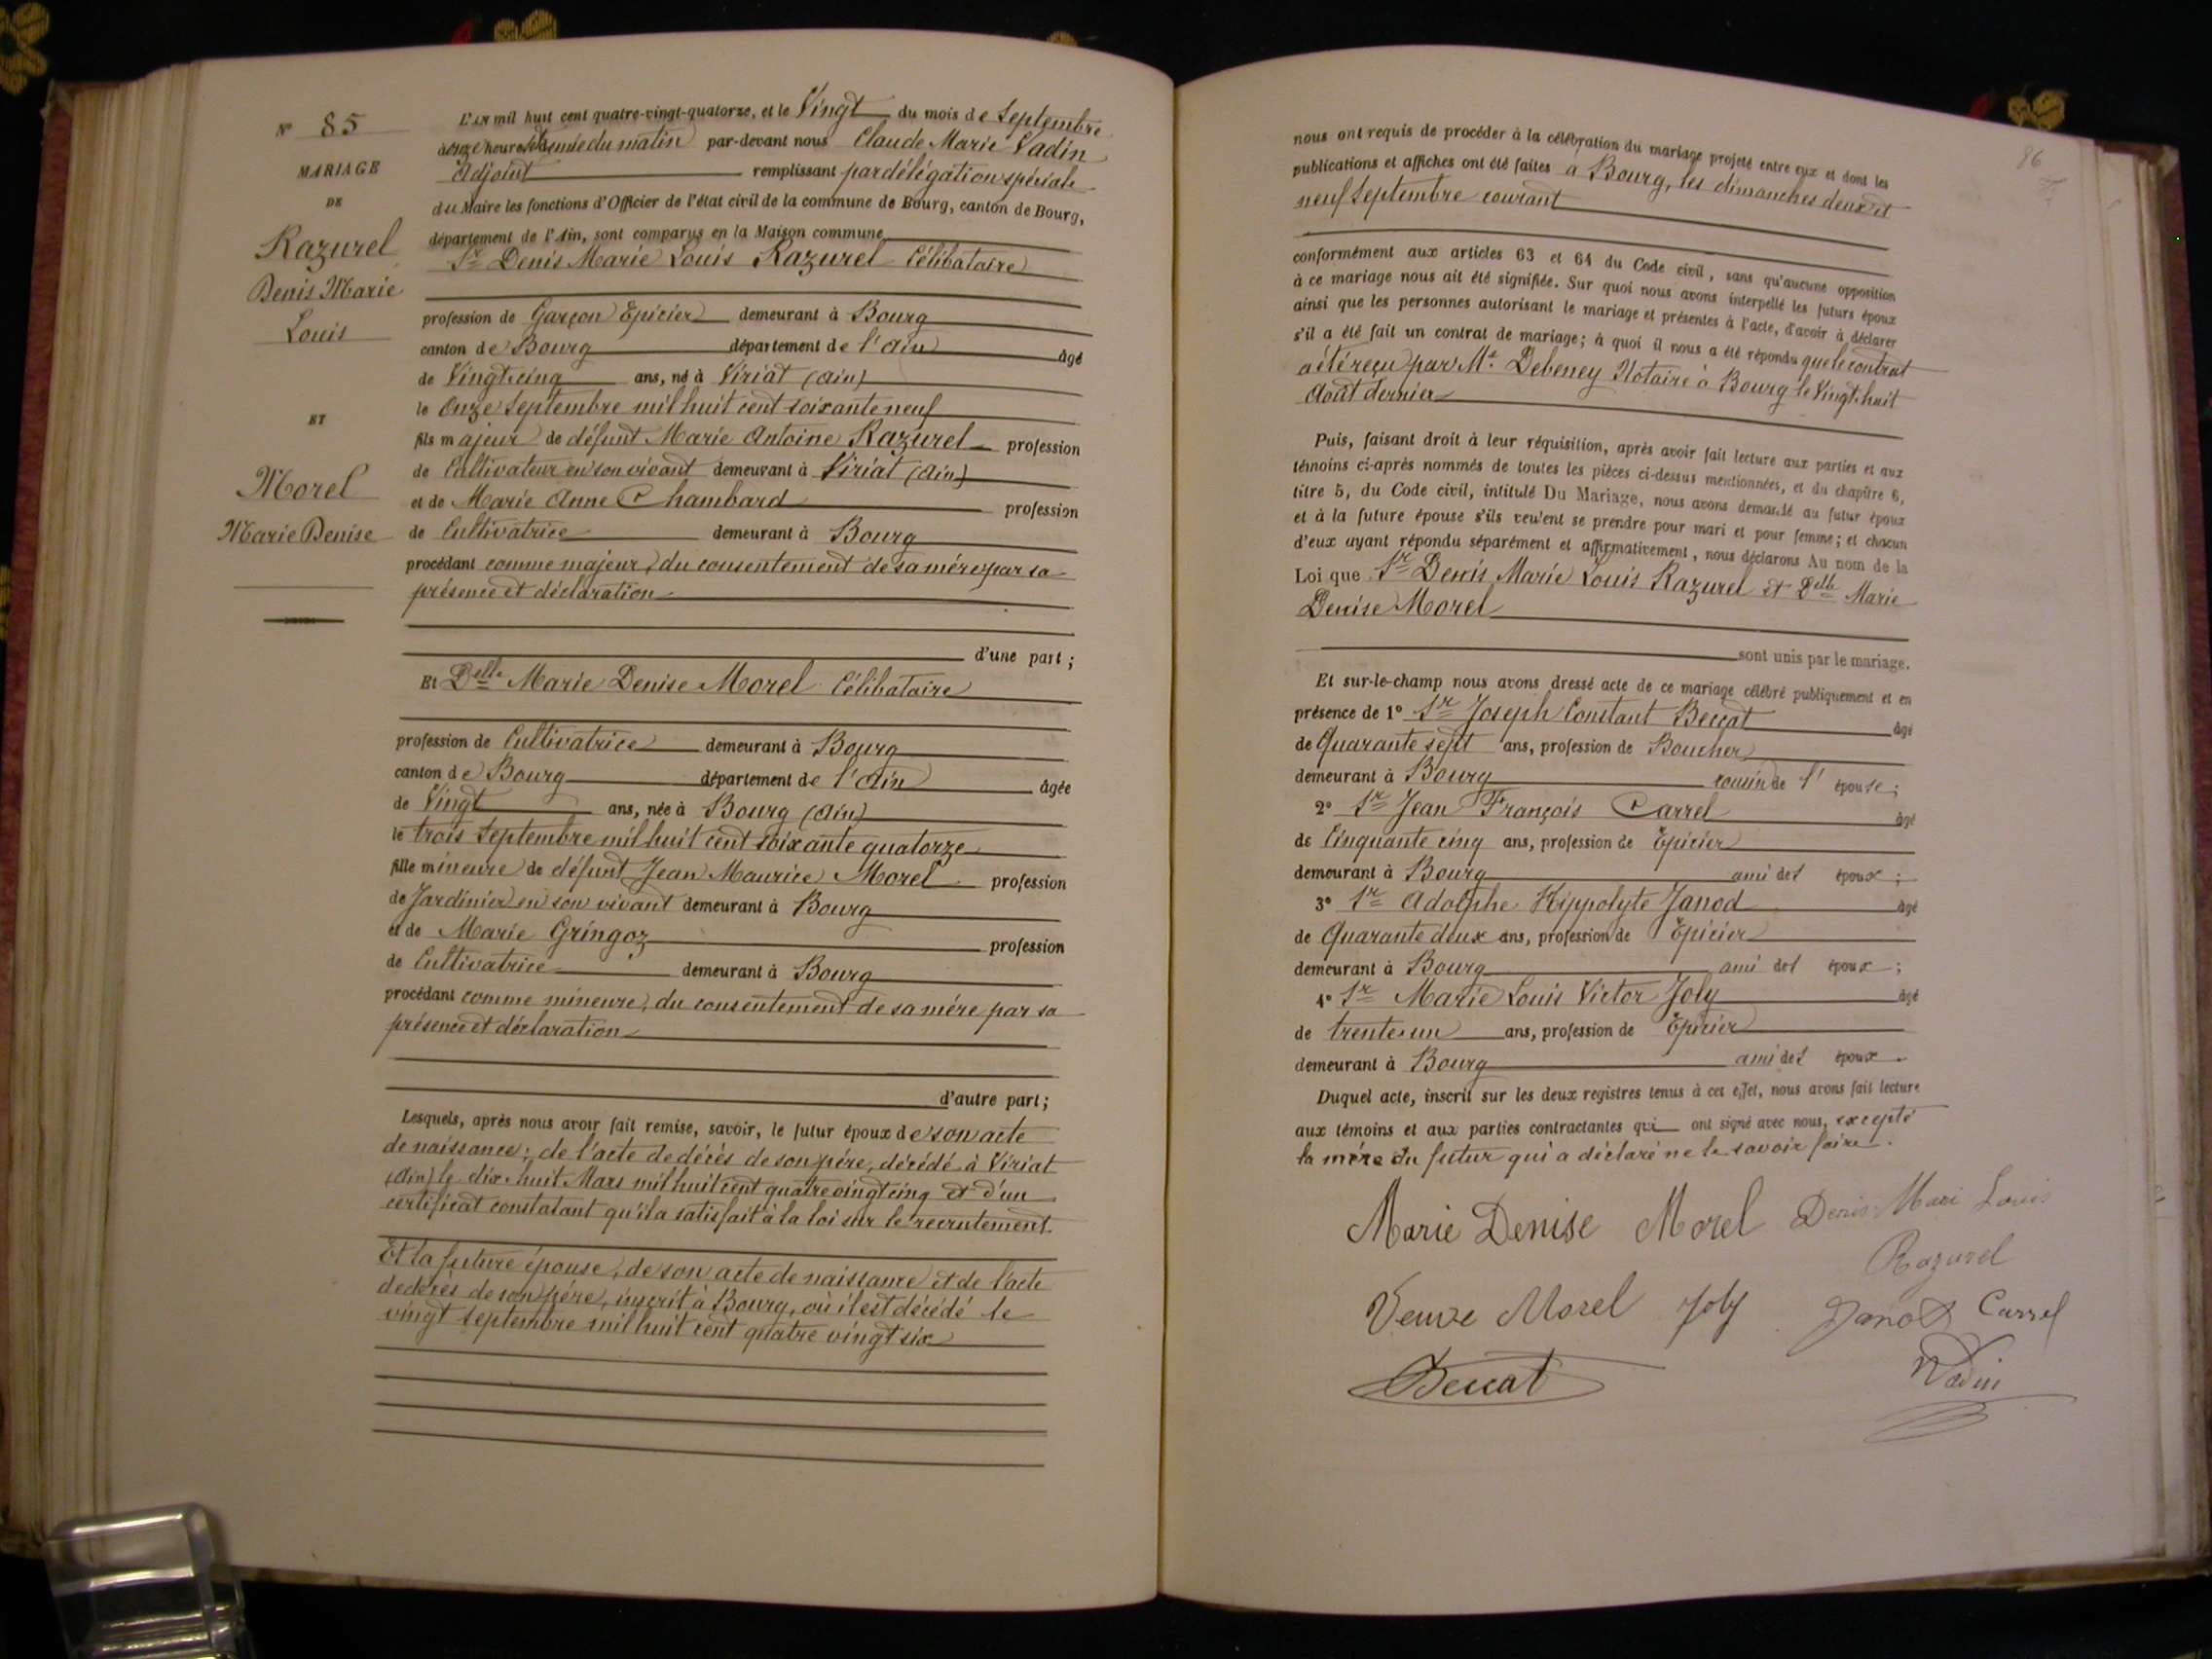 N° 85
MARIAGE
DE
Razurel
Denis Marie
Louis
ET
Morel
Marie Denise
L'an mil huit cent quatre-vingt-quatorze, et le Vingt du mois de Septembre
à onze heures et demie du matin par-devant nous Claude Marie Vadin
Adjoint remplissant par délégation spéciale
du Maire les fonctions d'Officier de l'état civil de la commune de Bourg, canton de Bourg,
département de l'Ain, sont comparus en la Maison commune
Sr Denis Marie Louis Razurel Célibataire
profession de Garçon Epicier demeurant à Bourg
canton de Bourg département de l'Ain âgé
de Vingt cinq ans, né à Viriat (Ain)
le Onze Septembre mil huit cent soixante neuf
fils majeur de défunt Marie Antoine Razurel profession
de Cultivateur en son vivant demeurant à Viriat (Ain)
et de Marie Anne Chambard profession
de Cultivatrice demeurant à Bourg
procédant comme majeur, du consentement de sa mère par sa
présence et déclaration
d'une part ;
Et Delle Marie Denise Morel Célibataire
profession de Cultivatrice demeurant à Bourg
canton de Bourg département de l'Ain âgée
de Vingt ans, née à Bourg (Ain)
le trois Septembre mil huit cent soixante quatorze
fille mineure de défunt Jean Maurice Morel profession
de Jardinier en son vivant demeurant à Bourg
et de Marie Gringoz profession
de Cultivatrice demeurant à Bourg
procédant comme mineure, du consentement de sa mère par sa
présence et déclaration
d'autre part ;
Lesquels, après nous avoir fait remise, savoir, le futur époux de son acte
de naissance ; de l'acte de décès de son père, décédé à Viriat
(Ain) le dix huit Mars mil huit cent quatre vingt cinq et d'un
certificat constatant qu'il a satisfait à la loi sur le recrutement.
Et la future épouse, de son acte de naissance et de l'acte
de décès de son père, inscrit à Bourg, où il est décédé le
vingt septembre mil huit cent quatre vingt six
86
nous ont requis de procéder à la célébration du mariage projeté entre eux et dont les
publications et affiches ont été faites à Bourg, les dimanches deux et
neuf Septembre courant
conformément aux articles 63 et 64 du Code civil, sans qu'aucune opposition
à ce mariage nous ait été signifiée. Sur quoi nous avons interpellé les futurs époux
ainsi que les personnes autorisant le mariage et présentes à l'acte, d'avoir à déclarer
s'il a été fait un contrat de mariage; à quoi il nous a été répondu que le contrat
a été reçu par Me Debeney Notaire à Bourg le Vingt huit
Août dernier
Puis, faisant droit à leur réquisition, après avoir fait lecture aux parties et aux
témoins ci-après nommés de toutes les pièces ci-dessus mentionnées, et du chapitre 6,
titre 5, du Code civil, intitulé Du Mariage, nous avons demandé au futur époux
et à la future épouse s'ils veulent se prendre pour mari et pour femme; et chacun
d'eux ayant répondu séparément et affirmativement, nous déclarons Au nom de la
Loi que Sr Denis Marie Louis Razurel et Delle Marie
Denise Morel
sont unis par le mariage.
Et sur-le-champ nous avons dressé acte de ce mariage célébré publiquement et en
présence de 1° Sr Joseph Constant Beccat âgé
de Quarante sept ans, profession de Boucher
demeurant à Bourg cousin de l' épouse ;
2° Sr Jean François Carrel âgé
de Cinquante cinq ans, profession de Epicier
demeurant à Bourg ami des époux ;
3° Sr Adolphe Hippolyte Janod âgé
de Quarante deux ans, profession de Epicier
demeurant à Bourg ami des époux ;
4° Sr Marie Louis Victor Joly âgé
de trente un ans, profession de Epicier
demeurant à Bourg ami des époux .
Duquel acte, inscrit sur les deux registres tenus à cet effet, nous avons fait lecture
aux témoins et aux parties contractantes qui ont signé avec nous, excepté
la mère du futur qui a déclaré ne le savoir faire.
Marie Denise Morel Denis Mari Louis
Razurel
Veuve Morel Joly Janod Carrel
Beccat Vadin